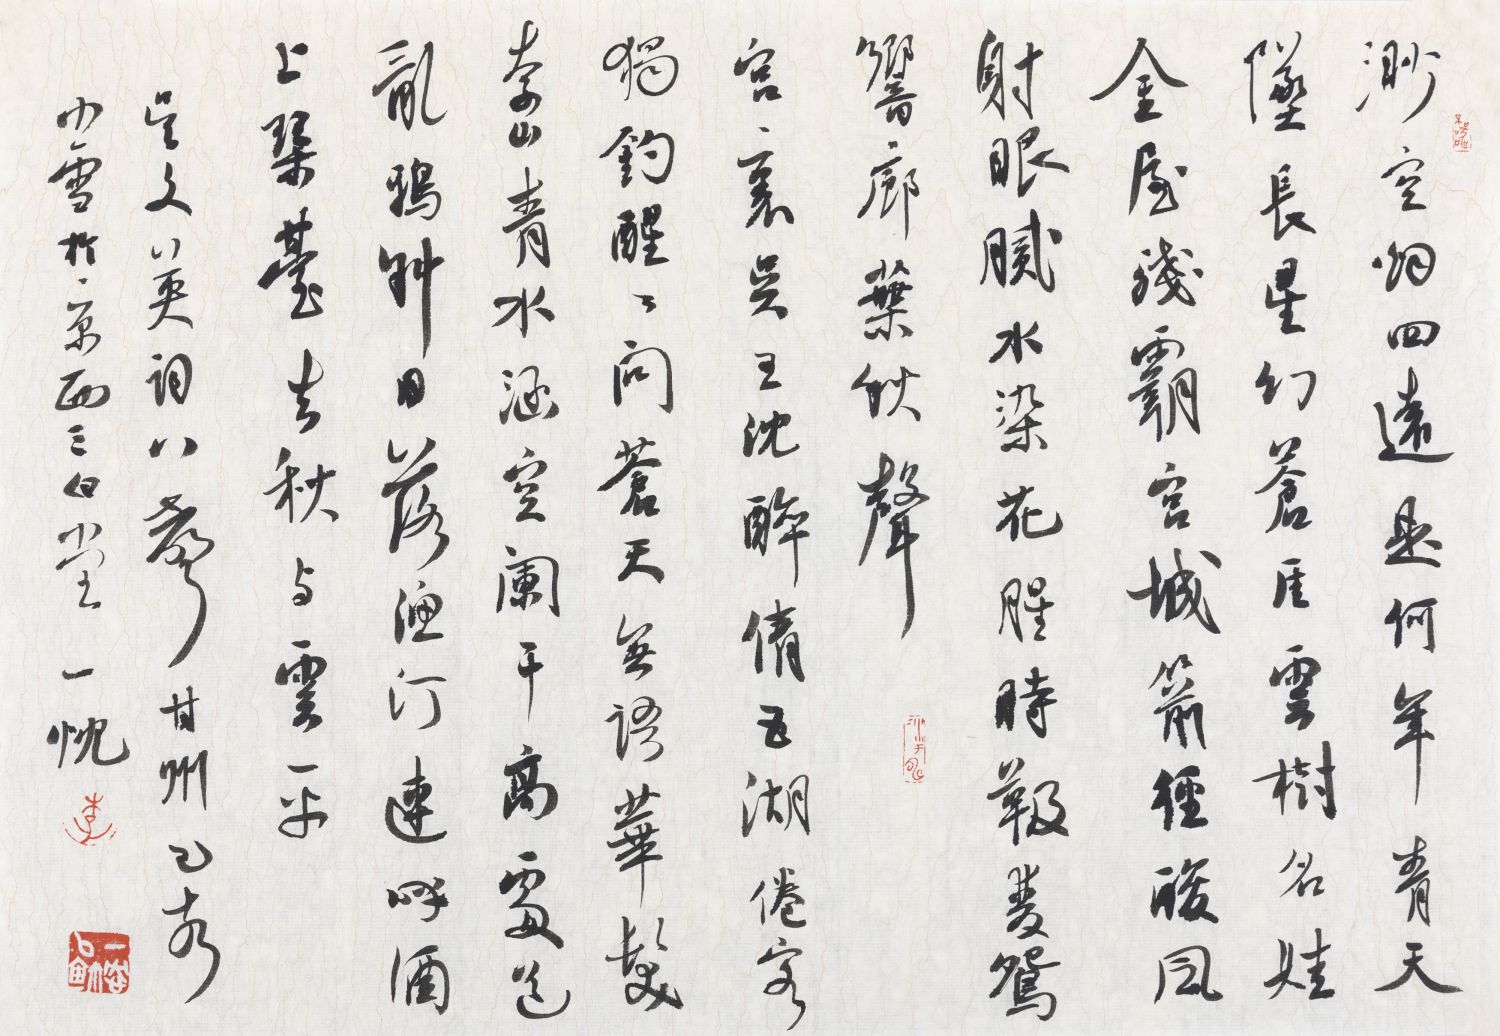 渺空烟四遠是何年青天
墜長星幻蒼厓雲樹名娃
金屋殘霸宮城箭徑酸風
射眼膩水染花腥時靸雙鴛
響廊葉秋聲
宮裏吳王沈醉倩五湖倦客
獨釣醒〻問蒼天無語華髮
奈山青水涵空闌干高處送
亂鴉斜日落漁汀連呼酒
上琴臺去秋与雲平
吳文英詞八聲甘州乙
小雪於京西三白堂一忱
李